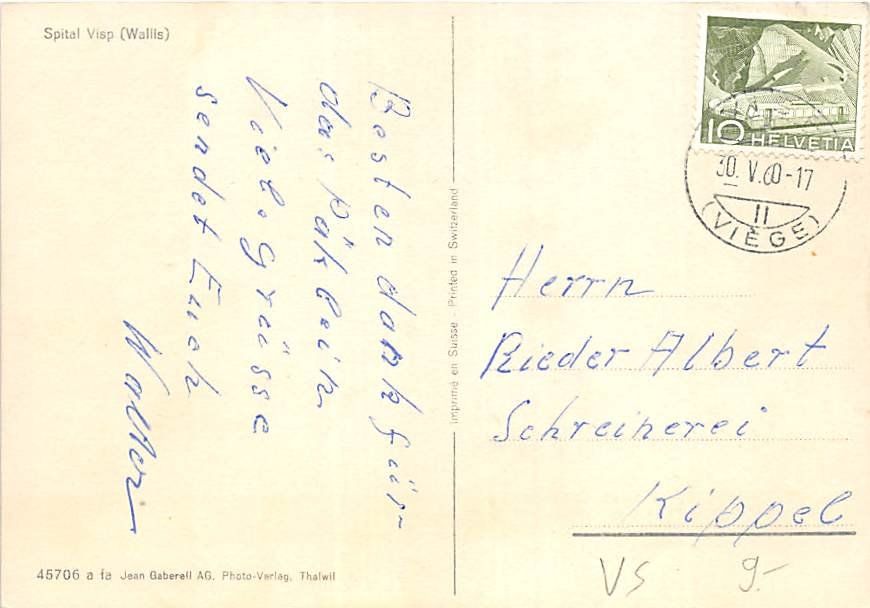 Spital Visp (Wallis)
Besten dank für
das Päklein
Viele Grüsse
sendet Euch
Walter
45706 a fa Jean Gaberell AG. Photo-Verlag, Thalwil
Imprimé en Suisse - Printed in Switzerland
10 HELVETIA
30. V. 60-17
II
(VIÈGE)
Herrn
Rieder Albert
Schreinerei
Kippel
VS 9.-